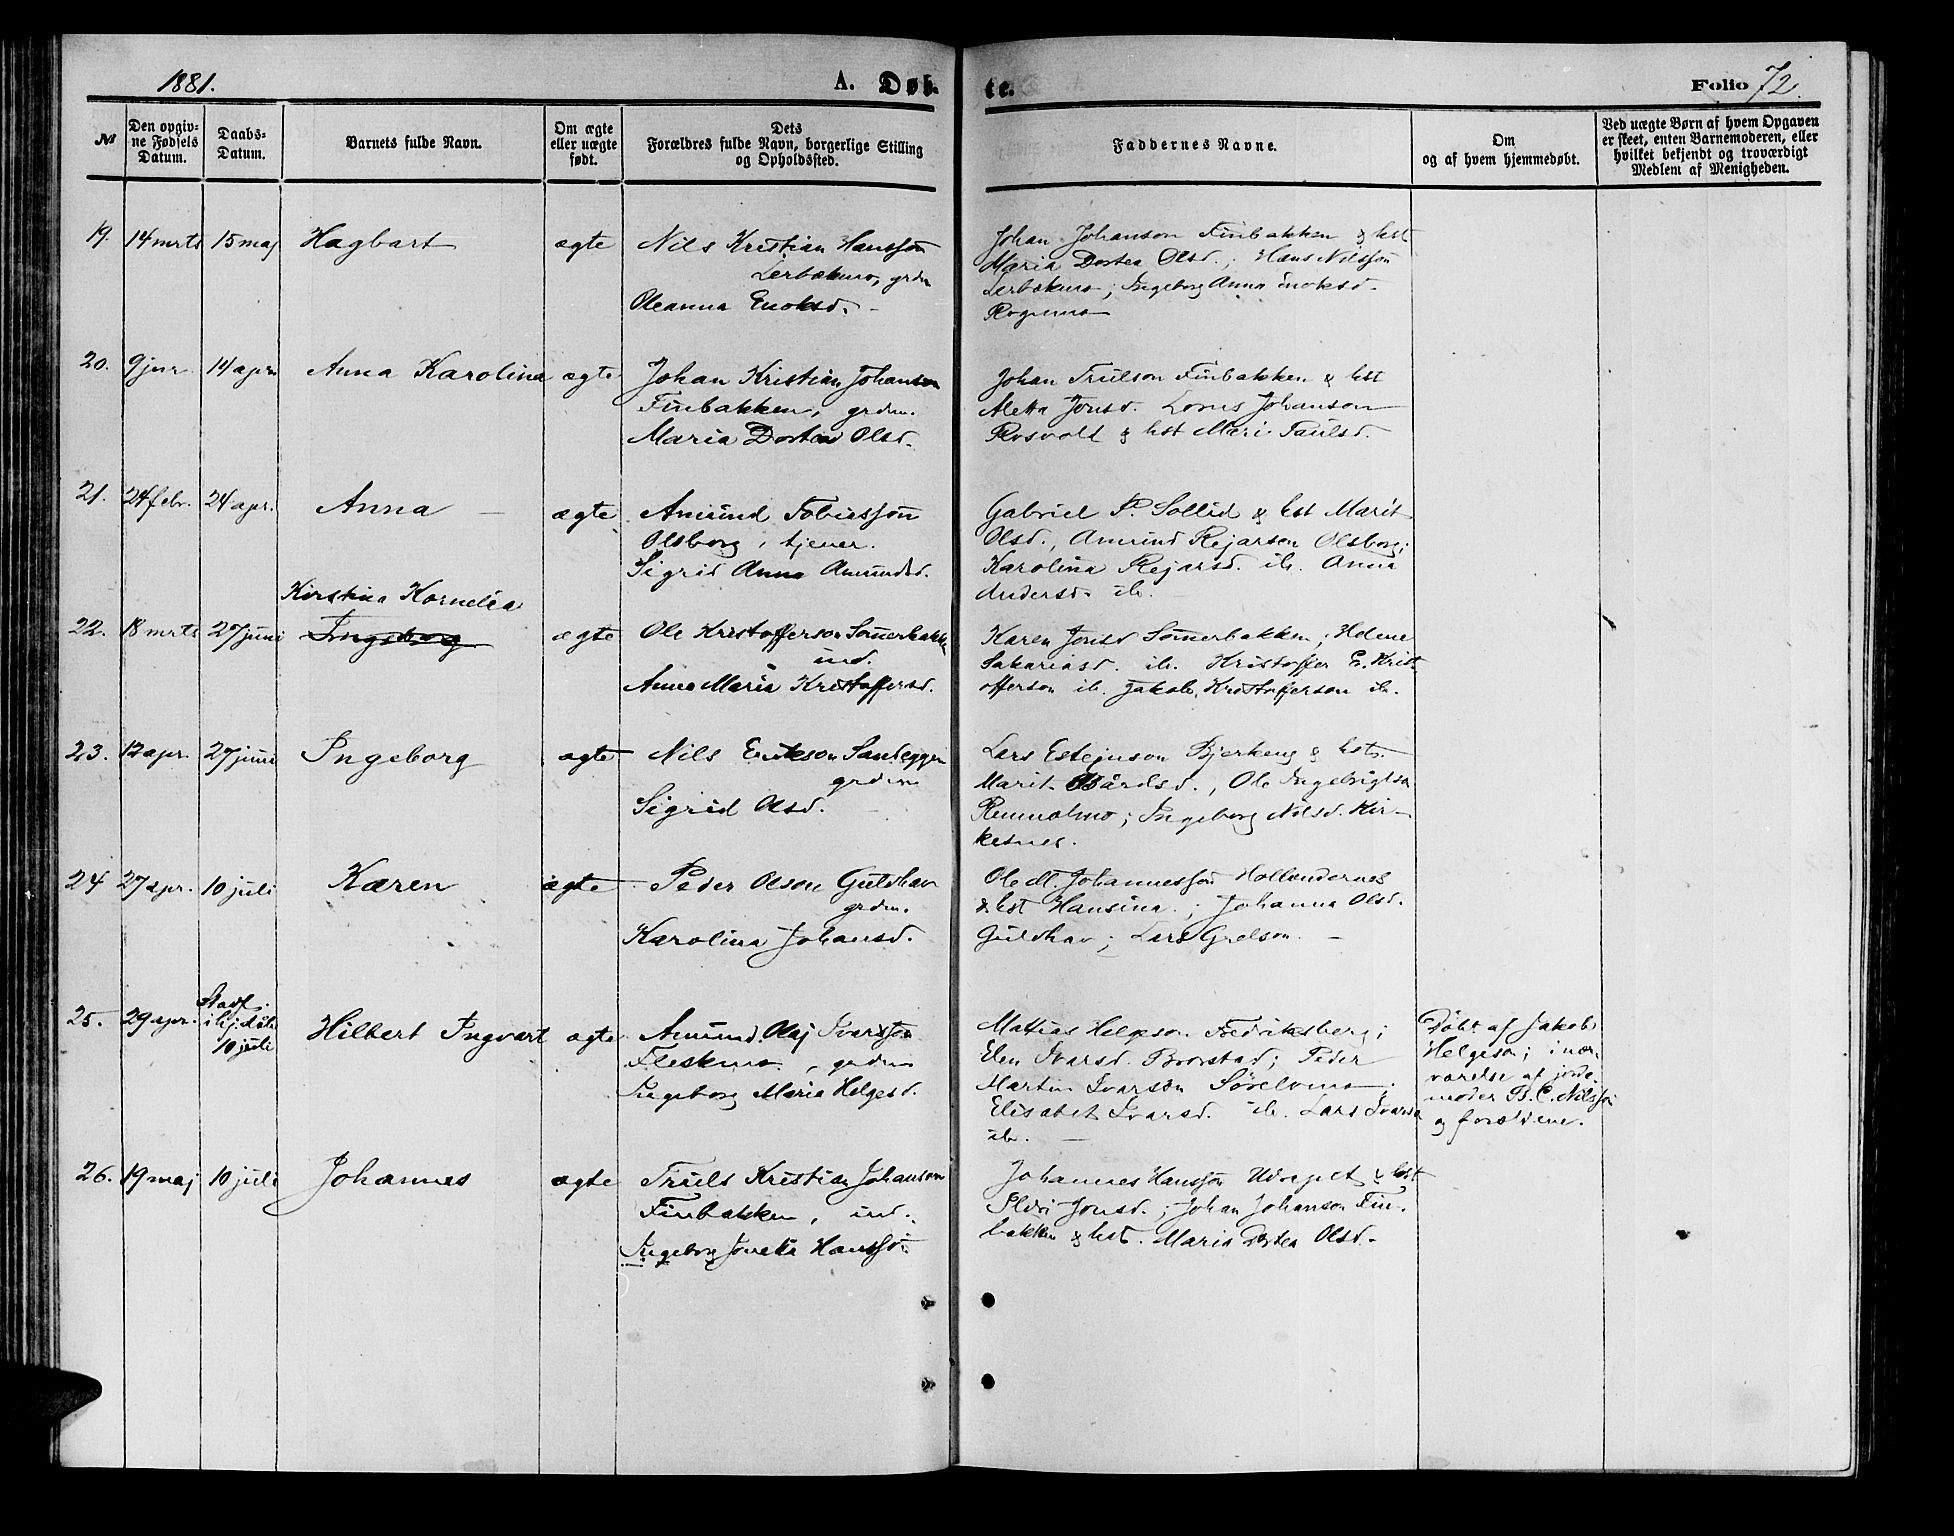 1881.
A. Døb-
te.
Folio 72.
№
Den opgiv-
ne Fødsels
Datum.
Daabs-
Datum.
Barnets fulde Navn.
Om ægte
eller uægte
født.
Dets
Forældres fulde Navn, borgerlige Stilling
og Opholdssted.
Faddernes Navne.
Om
og af hvem hjemmedøbt.
Ved uægte Børn af hvem Opgaven
er skeet, enten Barnemoderen, eller
hvilket bekjendt og troværdigt
Medlem af Menigheden.
19. 14 mrts 15 maj Hagbart ægte Nils Kristian Hansson
Lerbakmo, grdm
Oleanna Enoksd.
Johan Johanson Finbakken & hst
Maria Dortea Olsd.; Hans Nilsson
Lerbakmo; Ingeborg Anna Enoksd.
Rognmo
20. 9 jnr. 14 apr. Anna Karolina ægte Johan Kristian Johanson
Finbakken, grdm.
Maria Dortea Olsd.
Johan Trulson Finbakken & hst
Aletta Jonsd. Lorns Johanson
Rosvold & hst Meri Paulsd.
21. 24 febr. 24 apr. Anna ægte Amund Tobiasson
Olsborg, tjener.
Sigrid Anna Amundsd.
Gabriel P. Sollid & hst Marit
Olsd., Amund Rejarson Olsborg;
Karolina Rejarsd. ib. Anna
Andersd. ib.
Kirstina Kornelia
22. 18 mrts 27 juni Ingeborg ægte Ole Kristofferson Sømerbakken
ind.
Anna Maria Kristoffersd.
Karen Jonsd Sømerbakken; Helene
Sakariasd. ib. Kristoffer E. Krist
offerson ib. Jakob Kristofferson ib.
23. 12 apr. 27 juni Ingeborg ægte Nils Erikson Sandeggen
grdm
Sigrid Olsd.
Lars Estejnson Bjerkeng & hst.
Marit Bårdsd., Ole Ingebrigtson
Remnolmo; Ingeborg Nilsd. Kir-
kesnes.
24 27 apr. 10 juli Karen ægte Peder Olson Guldhav
grdm.
Karolina Johansd.
Ole M. Johannesson Hollendernes
& hst Hansina.; Johanna Olsd.
Guldhav; Lars Grelson.
25. 29 apr. Stadf.
i kj.
10 juli
Hilbert Ingvart ægte Amund Olaj Ivarsson
Fleskmo, grdm
Ingeborg Maria Helgesd.
Mattias Helgeson Fredriksberg;
Elen Ivarsd. Brorstad; Peder
Martin Ivarson Sørelvmo;
Elisabet Ivarsd. ib. Lars Ivarson
ib.
Døbt af Jakob
Helgeson; i nær-
værelse af jorde-
moder B. C. Nilsson
og forældrene.
26. 19 maj 10 juli Johannes ægte Truls Kristian Johanson
Finbakken, ind.
Ingeborg Jonetta Hanssdr.
Johannes Hansson Udsejet & hst
Johan Johanson Fin-
bakken & hst. Maria Dortea Olsd.